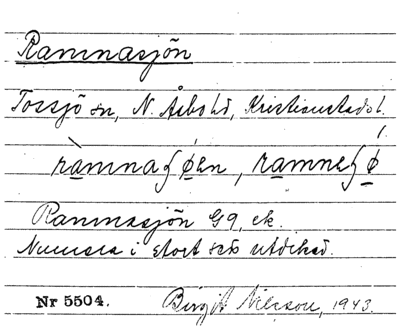 Ramnasjön
Tossjö sn, N. Åsbo hd, Kristianstads l.
ràmnaʃøen, ramneʃø
Ramnasjön G9, ek.
Numera i stort sett utdikad.
Nr 5504. Birgit Nilsson, 1943.